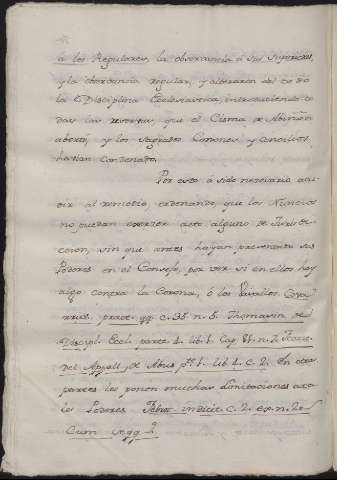 á los Regulares, la observancia á sus Superiores,
y la observancia regular, y alteraron del todo
la Disciplina Ecclesiastica, introduciendo to
das las reservas, que el Cisma de Aviñon
abortó, y los Sagrados Canones, y Concilios
havian condenado.
Por esto á sido necesario acu
dir al remedio, ordenando, que los Nuncios
no puedan exercer acto alguno de Jurisdic
cion, sin que antes hayan presentado sus
Poderes en el Consejo, por ver si en ellos hay
algo contra la Corona, ó los Vasallos Cova
rrub. pract. qq c. 35 n. 5. Thomasin de
Discipl. Eccl. parte 1. lib. 1. Cap.
del Appell. de Abus lib. 1. c. 2. En otras
partes les ponen muchas limitaciones a
los Poderes Febret c. 2. n. 2.
Cum seqq.